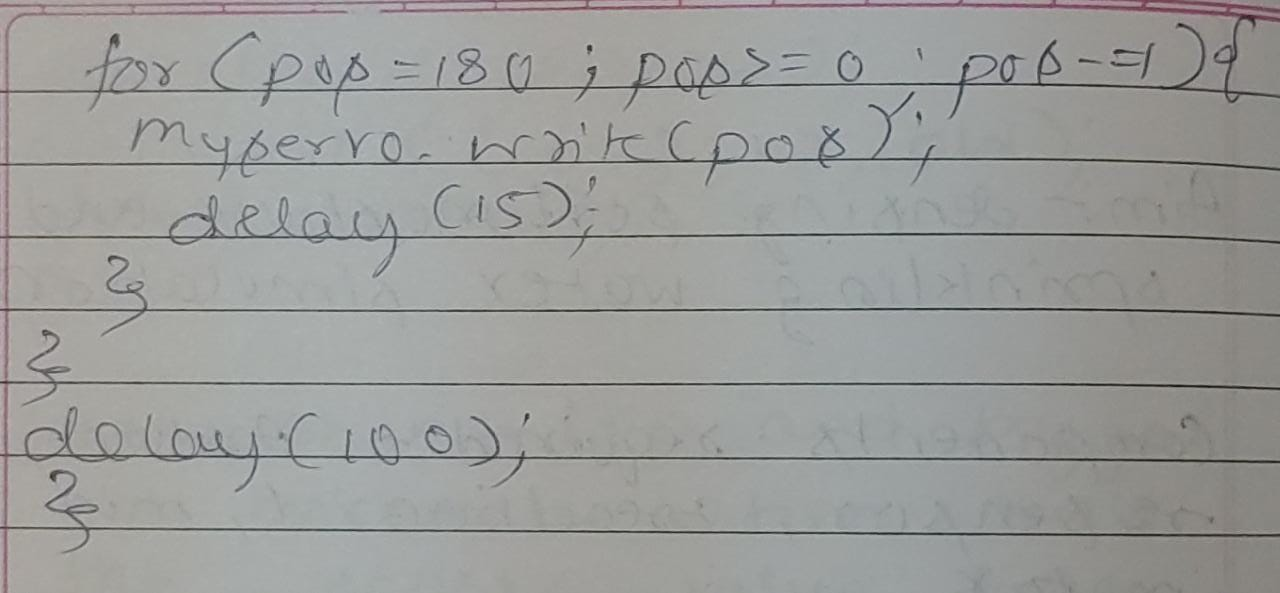 for (pos=180 ; pos>=0 ; pos-=1){
myservo.write(pos);
delay (15);
}
}
delay (100);
}